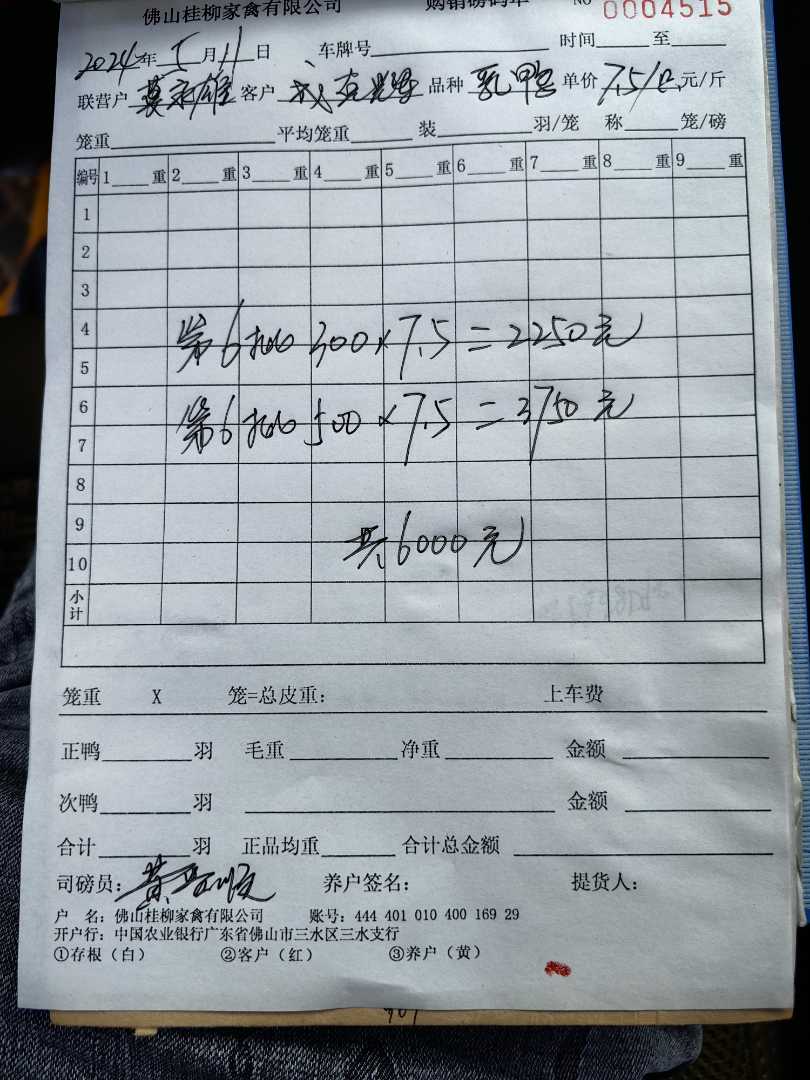 佛山桂柳家禽有限公司 购销磅码单 NO 0004515
2024年5月11日 车牌号 时间 至
联营户 客户 品种 乳甲 单价 7.5/ 元/斤
笼重 平均笼重 装 羽/笼 称 笼/磅
编号 1 重 2 重 3 重 4 重 5 重 6 重 7 重 8 重 9 重
1
2
3
4
第6批 300×7.5=2250元
5
6
第6批 500×7.5=3750元
7
8
9
共6000元
10
小计
笼重 X 笼=总皮重: 上车费
正鸭 羽 毛重 净重 金额
次鸭 羽 金额
合计 羽 正品均重 合计总金额
司磅员: 黄 养户签名: 提货人:
户 名: 佛山桂柳家禽有限公司 账号: 444 401 010 400 169 29
开户行: 中国农业银行广东省佛山市三水区三水支行
①存根(白) ②客户(红) ③养户(黄)